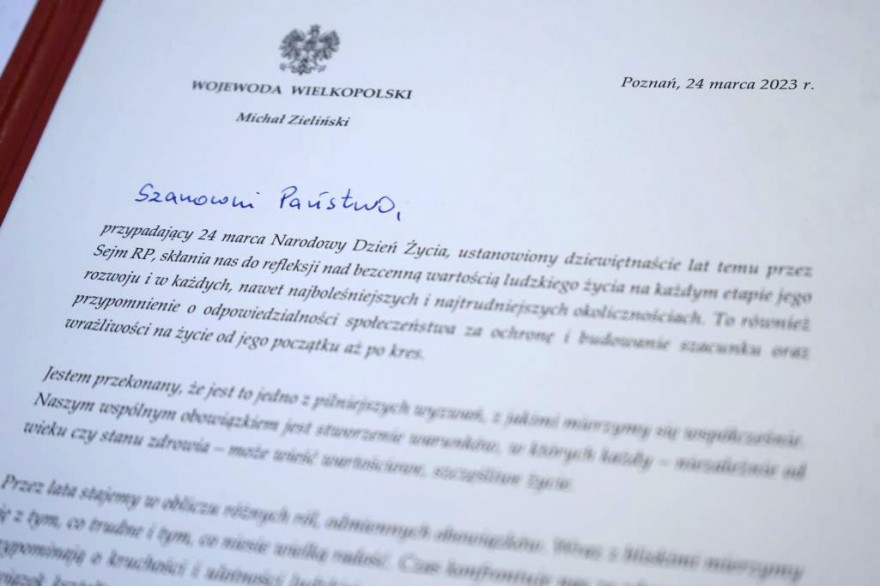 WOJEWODA WIELKOPOLSKI
Michał Zieliński
Poznań, 24 marca 2023 r.
Szanowni Państwo,
przypadający 24 marca Narodowy Dzień Życia, ustanowiony dziewiętnaście lat temu przez
Sejm RP, skłania nas do refleksji nad bezcenną wartością ludzkiego życia na każdym etapie jego
rozwoju i w każdych, nawet najboleśniejszych i najtrudniejszych okolicznościach. To również
przypomnienie o odpowiedzialności społeczeństwa za ochronę i budowanie szacunku oraz
wrażliwości na życie od jego początku aż po kres.
Jestem przekonany, że jest to jedno z pilniejszych wyzwań, z jakimi mierzymy się współcześnie.
Naszym wspólnym obowiązkiem jest stworzenie warunków, w których każdy – niezależnie od
wieku czy stanu zdrowia – może wieść wartościowe, szczęśliwe życie.
Przez lata stajemy w obliczu różnych ról, odmiennych obowiązków. Wraz z bliskimi mierzymy
się z tym, co trudne i tym, co niesie wielką radość. Czas konfrontuje nas
przypominają o kruchości i ulotności